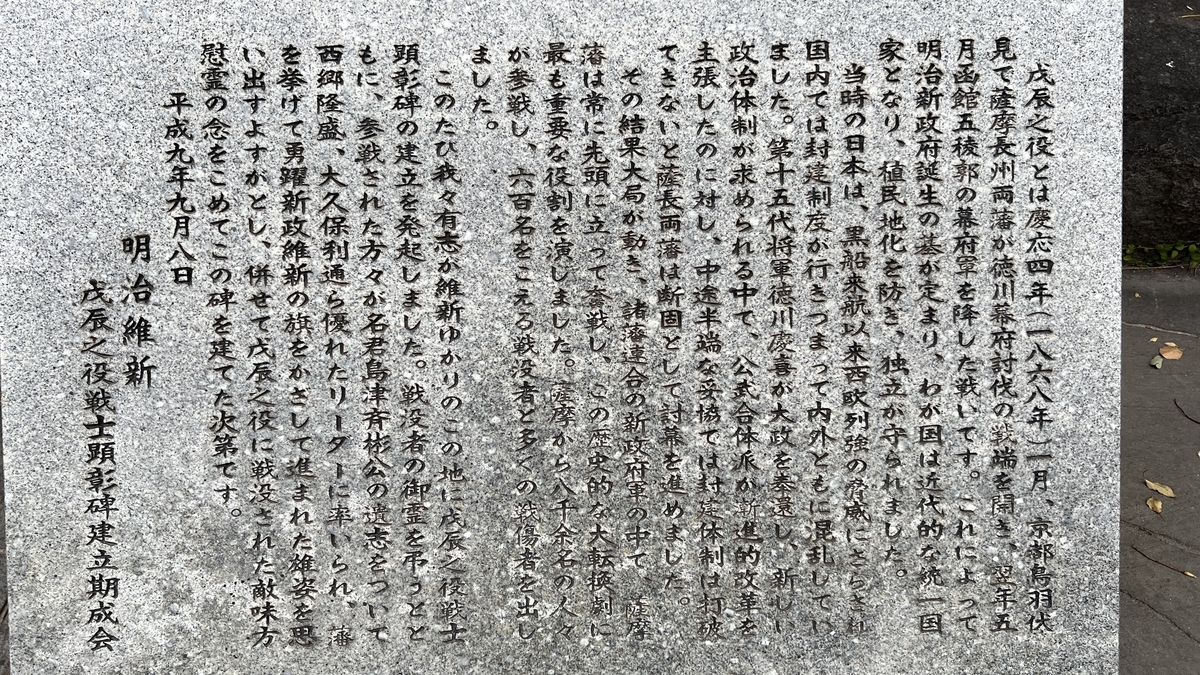 戊辰之役とは慶応四年(一八六八年)一月、京都鳥羽伏
見で薩摩長州両藩が徳川幕府討伐の戦端を開き、翌年五
月函館五稜郭の幕府軍を降した戦いです。これによって
明治新政府誕生の基が定まり、わが国は近代的な統一国
家となり、植民地化を防ぎ、独立が守られました。
当時の日本は、黒船来航以来西欧列強の脅威にさらされ
国内では封建制度が行きづまって内外ともに混乱してい
ました。第十五代将軍徳川慶喜が大政を奉還し、新しい
政治体制が求められる中で、公武合体派が漸進的改革を
主張したのに対し、中途半端な妥協では封建体制は打破
できないと薩長両藩は断固として討幕を進めました。
その結果大局が動き、諸藩連合の新政府軍の中で 薩摩
藩は常に先頭に立って奮戦し、この歴史的な大転換劇に
最も重要な役割を演じました。薩摩から八千余名の人々
が参戦し、六百名をこえる戦没者と多くの戦傷者を出し
ました。
このたび我々有志が維新ゆかりのこの地に戊辰之役戦士
顕彰碑の建立を発起しました。戦没者の御霊を弔うとと
もに、参戦された方々が名君島津斉彬公の遺志をついで
西郷隆盛、大久保利通ら優れたリーダーに率いられ、藩
を挙げて勇躍新政維新の旗をかざして進まれた雄姿を思
い出すよすがとし、併せて戊辰之役に戦没された敵味方
慰霊の念をこめてこの碑を建てた次第です。
平成九年九月八日
明治維新
戊辰之役戦士顕彰碑建立期成会